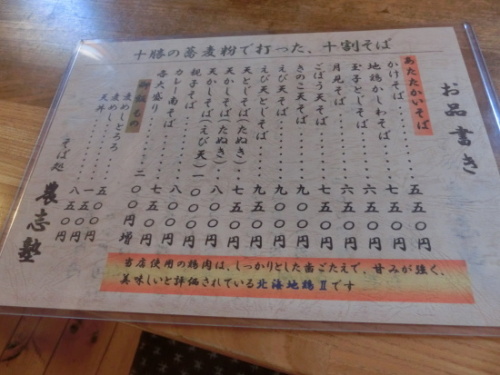 十勝の蕎麦粉で打った、十割そば
お品書き
あたたかいそば
かけそば・・・・・・五五〇円
地鶏かしわそば・・・・七五〇円
玉子とじそば・・・・・六五〇円
月見そば・・・・・・六五〇円
ごぼう天そば・・・・・七五〇円
きのこ天そば・・・・・九〇〇円
えび天そば・・・・・・九〇〇円
えび天とじそば・・・・九五〇円
天とじそば(たぬき)・・七五〇円
天かしそば(たぬき)・・八〇〇円
天かしそば(えび天)
親子そば・・・・・・八〇〇円
カレー南そば・・・・・七五〇円
各大盛り・・・・・・二〇〇円増
御飯もの
麦めし
麦めしとろろ
天丼
そば処 農志塾
当店使用の鶏肉は、しっかりとした歯ごたえで、甘みが強く、
美味しいと評価されている北海地鶏Ⅱです